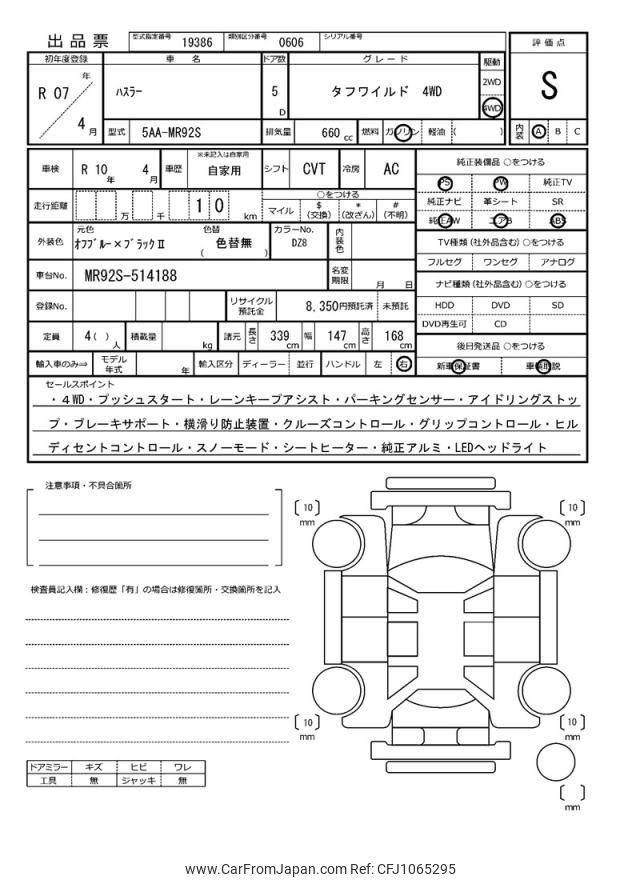 出品票 型式指定番号 19386 類別区分番号 0606 シリアル番号
初年度登録 車名 ドア数 グレード 駆動 評価点
R 07 年 4 月 ハスラー 5 D タフワイルド 4WD 2WD 4WD S
型式 5AA-MR92S 排気量 660 cc 燃料 ガソリン 軽油 ( ) 内装 A B C
車検 R 10 年 4 月 車歴 ※未記入は自家用 自家用 シフト CVT 冷房 AC
純正装備品 ○をつける
PS PW 純正TV
純正ナビ 革シート SR
純正AW エアB ABS
走行距離 万 千 1 0 km ○をつける
マイル $ (交換) * (改ざん) # (不明)
外装色 元色 オフブルー×ブラックⅡ 色替 色替無 ( ) カラーNo. DZ8 内装色
TV種類 (社外品含む) ○をつける
フルセグ ワンセグ アナログ
車台No. MR92S-514188 名変期限 月 日
ナビ種類 (社外品含む) ○をつける
HDD DVD SD
DVD再生可 CD
登録No. リサイクル預託金 8,350円預託済 未預託
定員 4 ( ) 人 積載量 kg 諸元 長さ 339 cm 幅 147 cm 高さ 168 cm
後日発送品 ○をつける
新車保証書 車輌取説
輸入車のみ⇒ モデル年式 年 輸入区分 ディーラー 並行 ハンドル 左 右
セールスポイント
・4WD・プッシュスタート・レーンキープアシスト・パーキングセンサー・アイドリングストッ
プ・ブレーキサポート・横滑り防止装置・クルーズコントロール・グリップコントロール・ヒル
ディセントコントロール・スノーモード・シートヒーター・純正アルミ・LEDヘッドライト
注意事項・不具合箇所
〔10〕mm 〔10〕mm
検査員記入欄：修復歴「有」の場合は修復箇所・交換箇所を記入
〔10〕mm 〔10〕mm
ドアミラー キズ ヒビ ワレ
工具 無 ジャッキ 無
〔 〕mm
www.CarFromJapan.com Ref: CFJ1065295